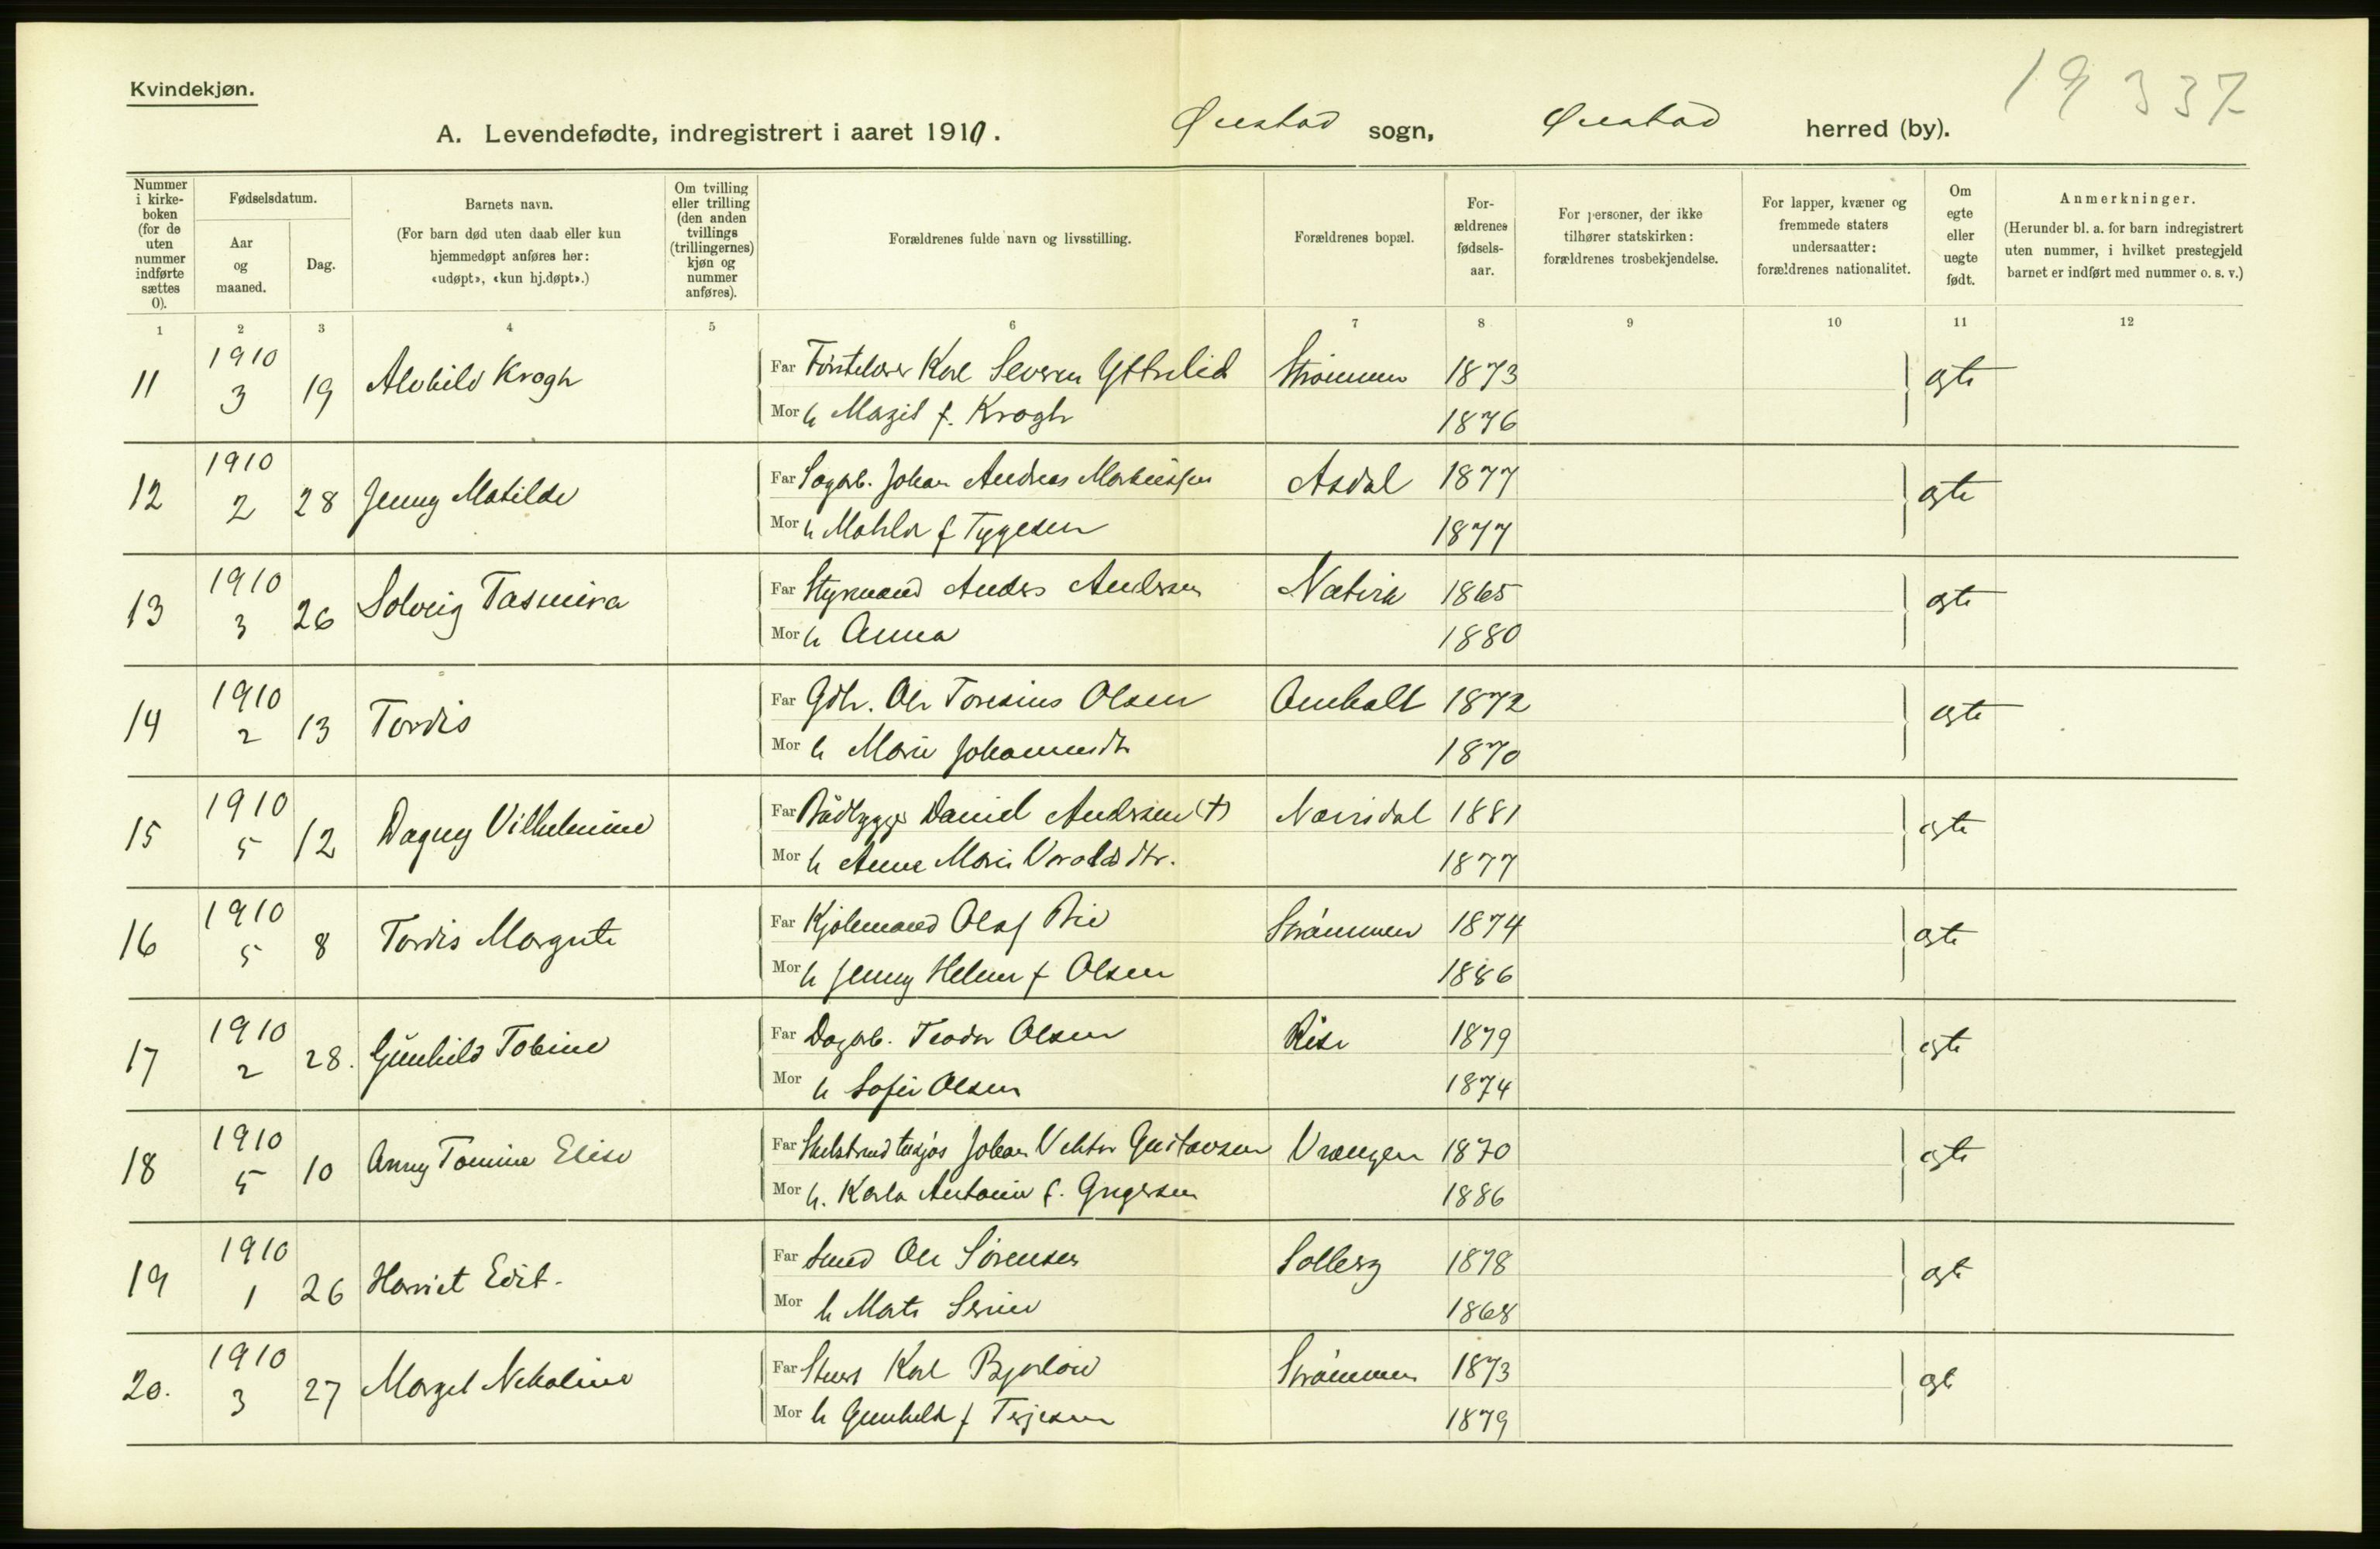 Kvindekjøn.
19 337
A. Levendefødte, indregistrert i aaret 1910. Øiestad sogn, Øiestad herred (by).
Nummer i kirkeboken (for de uten nummer indførte sættes 0).
Fødselsdatum.
Aar og maaned.
Dag.
Barnets navn.
(For barn død uten daab eller kun hjemmedøpt anføres her: «udøpt», «kun hj.døpt».)
Om tvilling eller trilling (den anden tvillings (trillingernes) kjøn og nummer anføres).
Forældrenes fulde navn og livsstilling.
Forældrenes bopæl.
Forældrenes fødselsaar.
For personer, der ikke tilhører statskirken: forældrenes trosbekjendelse.
For lapper, kvæner og fremmede staters undersaatter: forældrenes nationalitet.
Om egte eller uegte født.
Anmerkninger.
(Herunder bl. a. for barn indregistrert uten nummer, i hvilket prestegjeld barnet er indført med nummer o. s. v.)
1 2 3 4 5 6 7 8 9 10 11 12
11 1910 3 19 Alvhild Krogh Far Førstelærer Karl Severin Yttrelid Strømmen 1873 egte
Mor h Magit f. Krogh 1876
12 1910 2 28 Jenny Matilde Far Dagarb. Johan Andreas Mathiassen Asdal 1877 egte
Mor h Matilde f Tygesen 1877
13 1910 3 26 Solveig Tasmira Far Styrmand Anders Andersen Natvik 1865 egte
Mor h Anna 1880
14 1910 2 13 Tordis Far Gdb. Ole Toresius Olsen Omholt 1872 egte
Mor h Marie Johannesdtr 1870
15 1910 5 12 Dagny Vilhelmine Far Bådbygger Daniel Andersen (†) Nævisdal 1881 egte
Mor h Anne Marie dtr. 1877
16 1910 5 8 Tordis Margrete Far Kjølemand Olaf Bie Strømmen 1874 egte
Mor h Jenny Helene f Olsen 1886
17 1910 2 28. Gunhild Tobine Far Dagarb. Teodor Olsen Rise 1879 egte
Mor h Sofie Olsen 1874
18 1910 5 10 Anny Tomine Elise Far Johan Viktor Gustavsen Vrængen 1870 egte
Mor h. Karla Antonie f. Gregersen 1886
19 1910 1 26 Harriet Edit. Far Smed Ole Sørensen Solberg 1878 egte
Mor h Marte Serine 1868
20. 1910 3 27 Margit Nikoline Far Stuert Karl Bjorlow Strømmen 1873 egte
Mor h Gunhild f Terjesen 1879